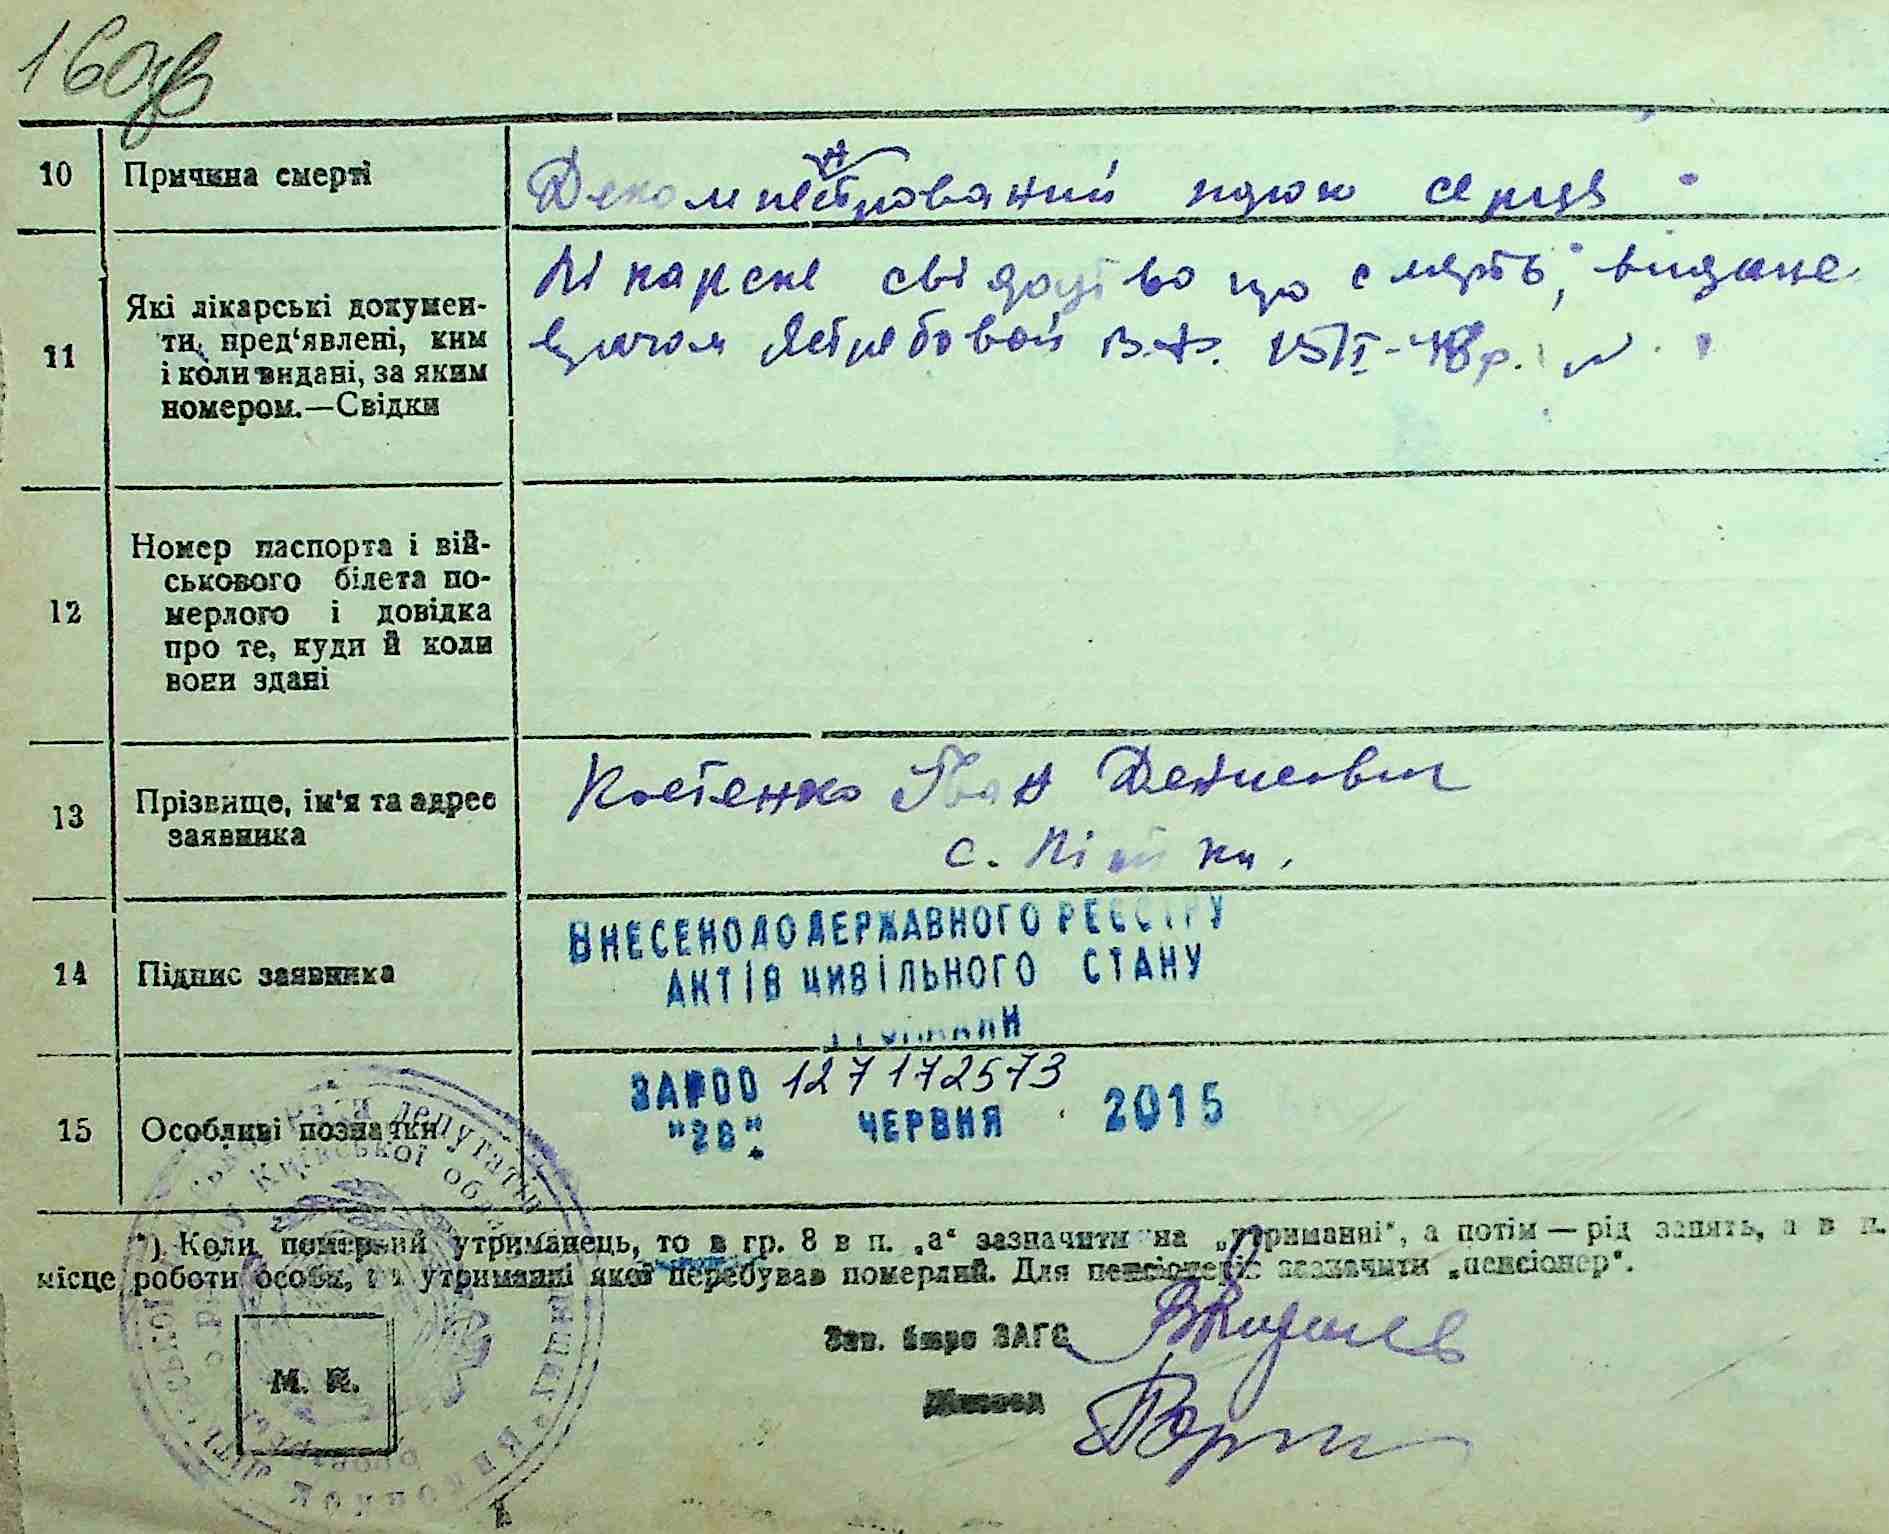 160зв
10 Причина смерті
Декомпенсрований порок серця
11 Які лікарські докумен-
ти пред'явлені, ким
і коли видані, за яким
номером.—Свідки
Лікарске свідоцтво про смерть, видане
врачом Ястребовой В.Ф. 15/I-48р. №
12 Номер паспорта і вій-
ськового білета по-
мерлого і довідка
про те, куди й коли
вони здані
13 Прізвище, ім'я та адрес
заявника
Костенко Іван Денисович
с. Літки.
14 Підпис заявника
ВНЕСЕНО ДО ДЕРЖАВНОГО РЕЄСТРУ
АКТІВ ЦИВІЛЬНОГО СТАНУ
ГРОМАДЯН
15 Особливі позначки
ЗА №00 127172573
"26" ЧЕРВНЯ 2015
*) Коли померлий утриманець, то в гр. 8 в п. „а“ зазначити на „утриманні“, а потім — рід занять, а в п.
місце роботи особи, на утриманні якої перебував померлий. Для пенсіонерів зазначити „пенсіонер“.
Зав. бюро ЗАГС
М. П.
Діловод
депутатів
Київської